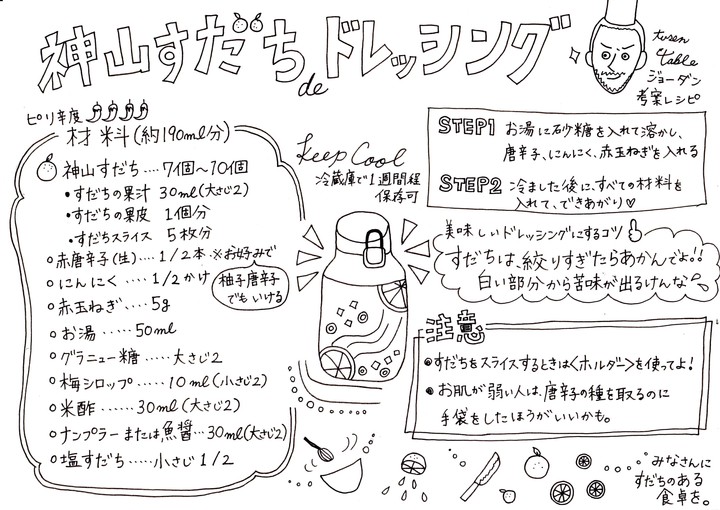 神山すだち de ドレッシング
tusen
table
ジョーダン
考案レシピ
ピリ辛度
材料(約190ml分)
神山すだち....7個〜10個
・すだちの果汁 30ml(大さじ2)
・すだちの果皮 1個分
・すだちスライス 5枚分
赤唐辛子(生)....1/2本 ※お好みで
柚子唐辛子
でもいける
にんにく.....1/2かけ
赤玉ねぎ.....5g
お湯.....50ml
グラニュー糖.....大さじ2
梅シロップ.....10ml(小さじ2)
米酢......30ml(大さじ2)
ナンプラーまたは魚醤...30ml(大さじ2)
塩すだち.....小さじ1/2
Keep Cool
冷蔵庫で1週間程
保存可
STEP1 お湯に砂糖を入れて溶かし、
唐辛子、にんにく、赤玉ねぎを入れる
STEP2 冷ました後に、すべての材料を
入れて、できあがり♡
美味しいドレッシングにするコツ
すだちは、絞りすぎたらあかんでよ!!
白い部分から苦味が出るけんな
注意
・すだちをスライスするときは<ホルダー>を使ってよ!
・お肌が弱い人は、唐辛子の種を取るのに
手袋をしたほうがいいかも。
みなさんに
すだちのある
食卓を。